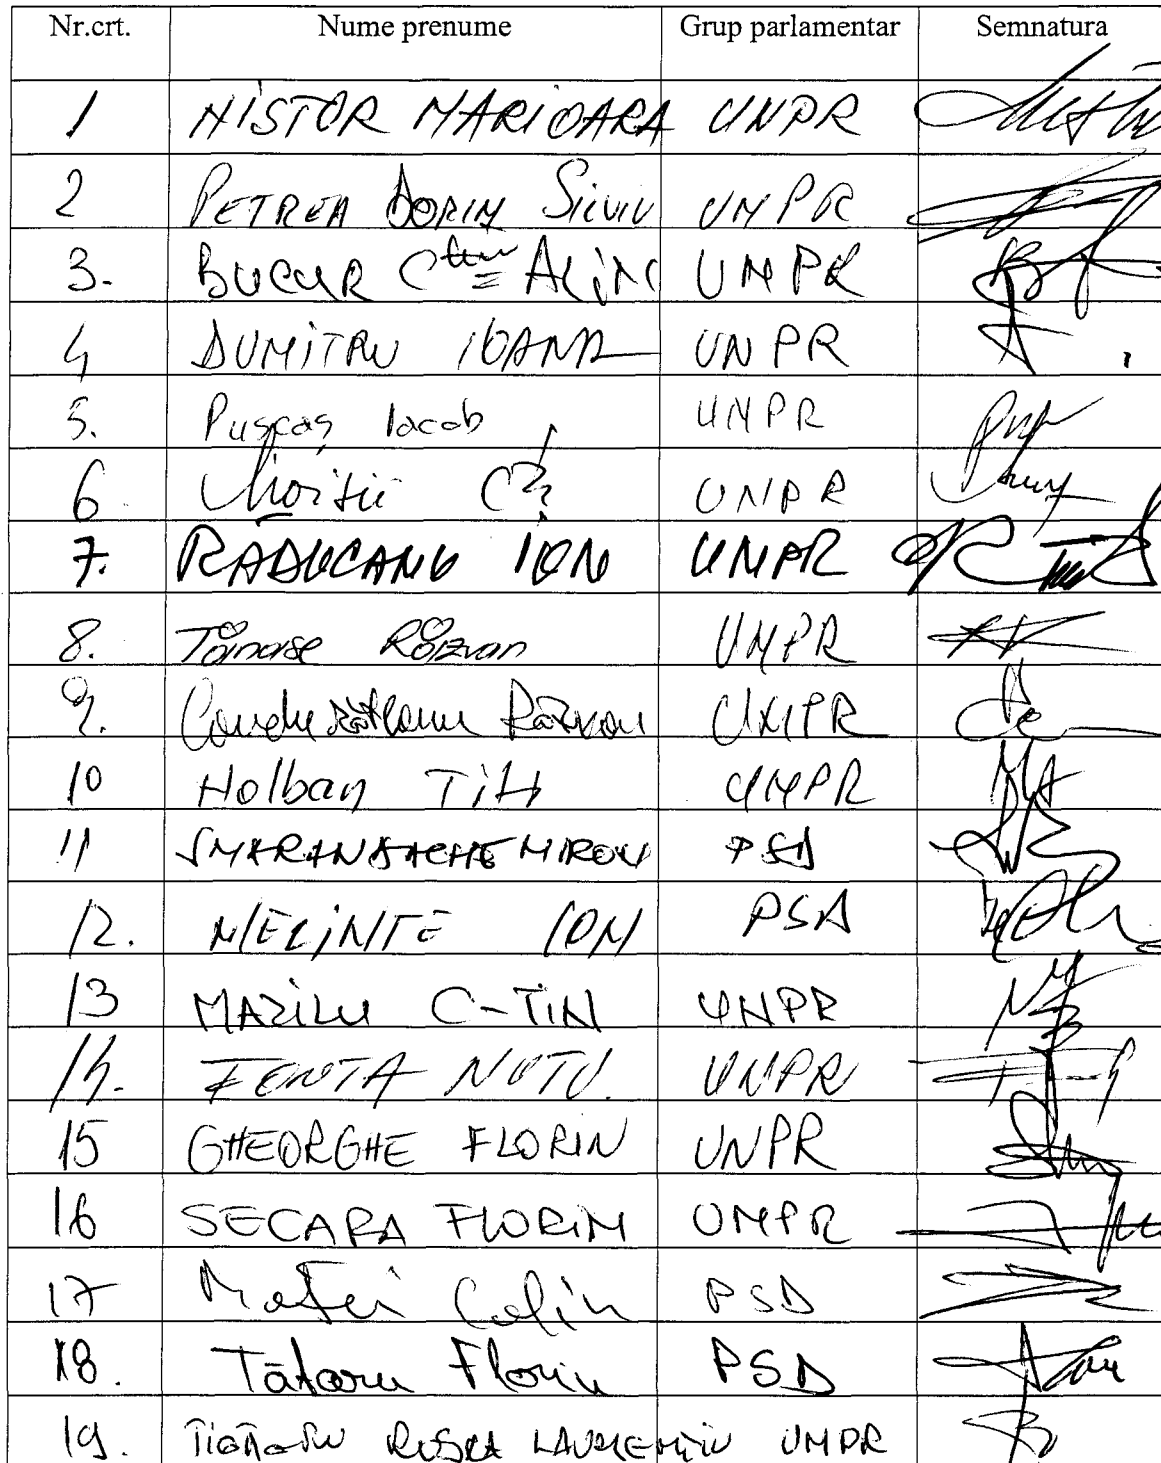 Nr.crt. Nume prenume Grup parlamentar Semnatura
1 NISTOR MARIOARA UNPR
2 PETREA DORIN Silviu UNPR
3. BUCUR Ctin ALIN UNPR
4 DUMITRU IOANA UNPR
5. Puşcaş Iacob UNPR
6 UNPR
7. RĂDUCANU ION UNPR
8. Tănase Răzvan UNPR
9. Răzvan UNPR
10 Holban Titi UNPR
11 SMARANDACHE MIRON PSD
12. MELINTE ION PSD
13 MAZILU C-TIN UNPR
14. UNPR
15 GHEORGHE FLORIN UNPR
16 SECARA FLORIN UNPR
17 Matei Calin PSD
18. Tātaru Florin PSD
19. UNPR